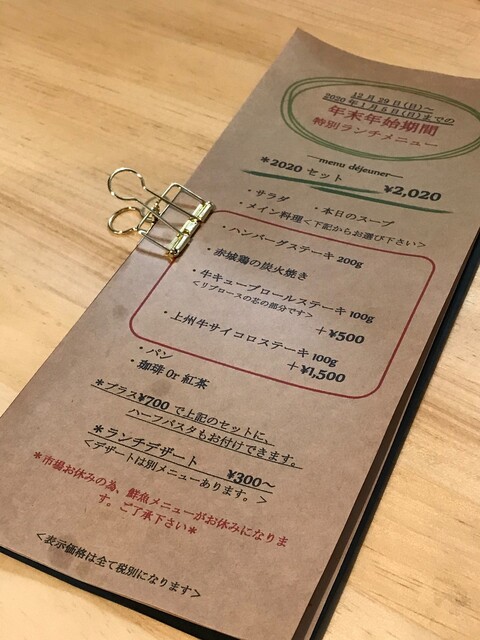 12月29日(日)～
2020年1月5日(日)までの
年末年始期間
特別ランチメニュー
―menu déjeuner―
*2020 セット ¥2,020
・サラダ ・本日のスープ
・メイン料理<下記からお選び下さい>
・ハンバーグステーキ 200g
・赤城鶏の炭火焼き
・牛キューブロールステーキ 100g
<リブロースの芯の部分です> +¥500
・上州牛サイコロステーキ 100g
+¥1,500
・パン
・珈琲 Or 紅茶
*プラス¥700 で上記のセットに、
ハーフパスタもお付けできます。
*ランチデザート ¥300～
<デザートは別メニューあります。>
*市場お休みの為、鮮魚メニューがお休みになりま
す。ご了承下さい*
<表示価格は全て税別になります>